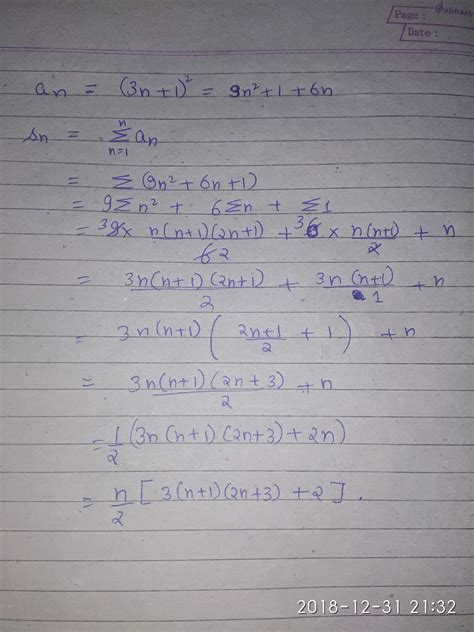 Page :
Date :
an = (3n+1)² = 9n²+1+6n
Sn = n Σ n=1 an
= Σ (9n²+6n+1)
= 9Σn² + 6Σn + Σ1
= 3 9 × n(n+1)(2n+1) / 6 2 + 3 6 × n(n+1) / 2 + n
= 3n(n+1)(2n+1) / 2 + 3n(n+1) / 1 + n
= 3n(n+1) ( 2n+1 / 2 + 1 ) + n
= 3n(n+1)(2n+3) / 2 + n
= 1/2 (3n(n+1)(2n+3)+2n)
= n/2 [ 3(n+1)(2n+3) + 2 ].
2018-12-31 21:32